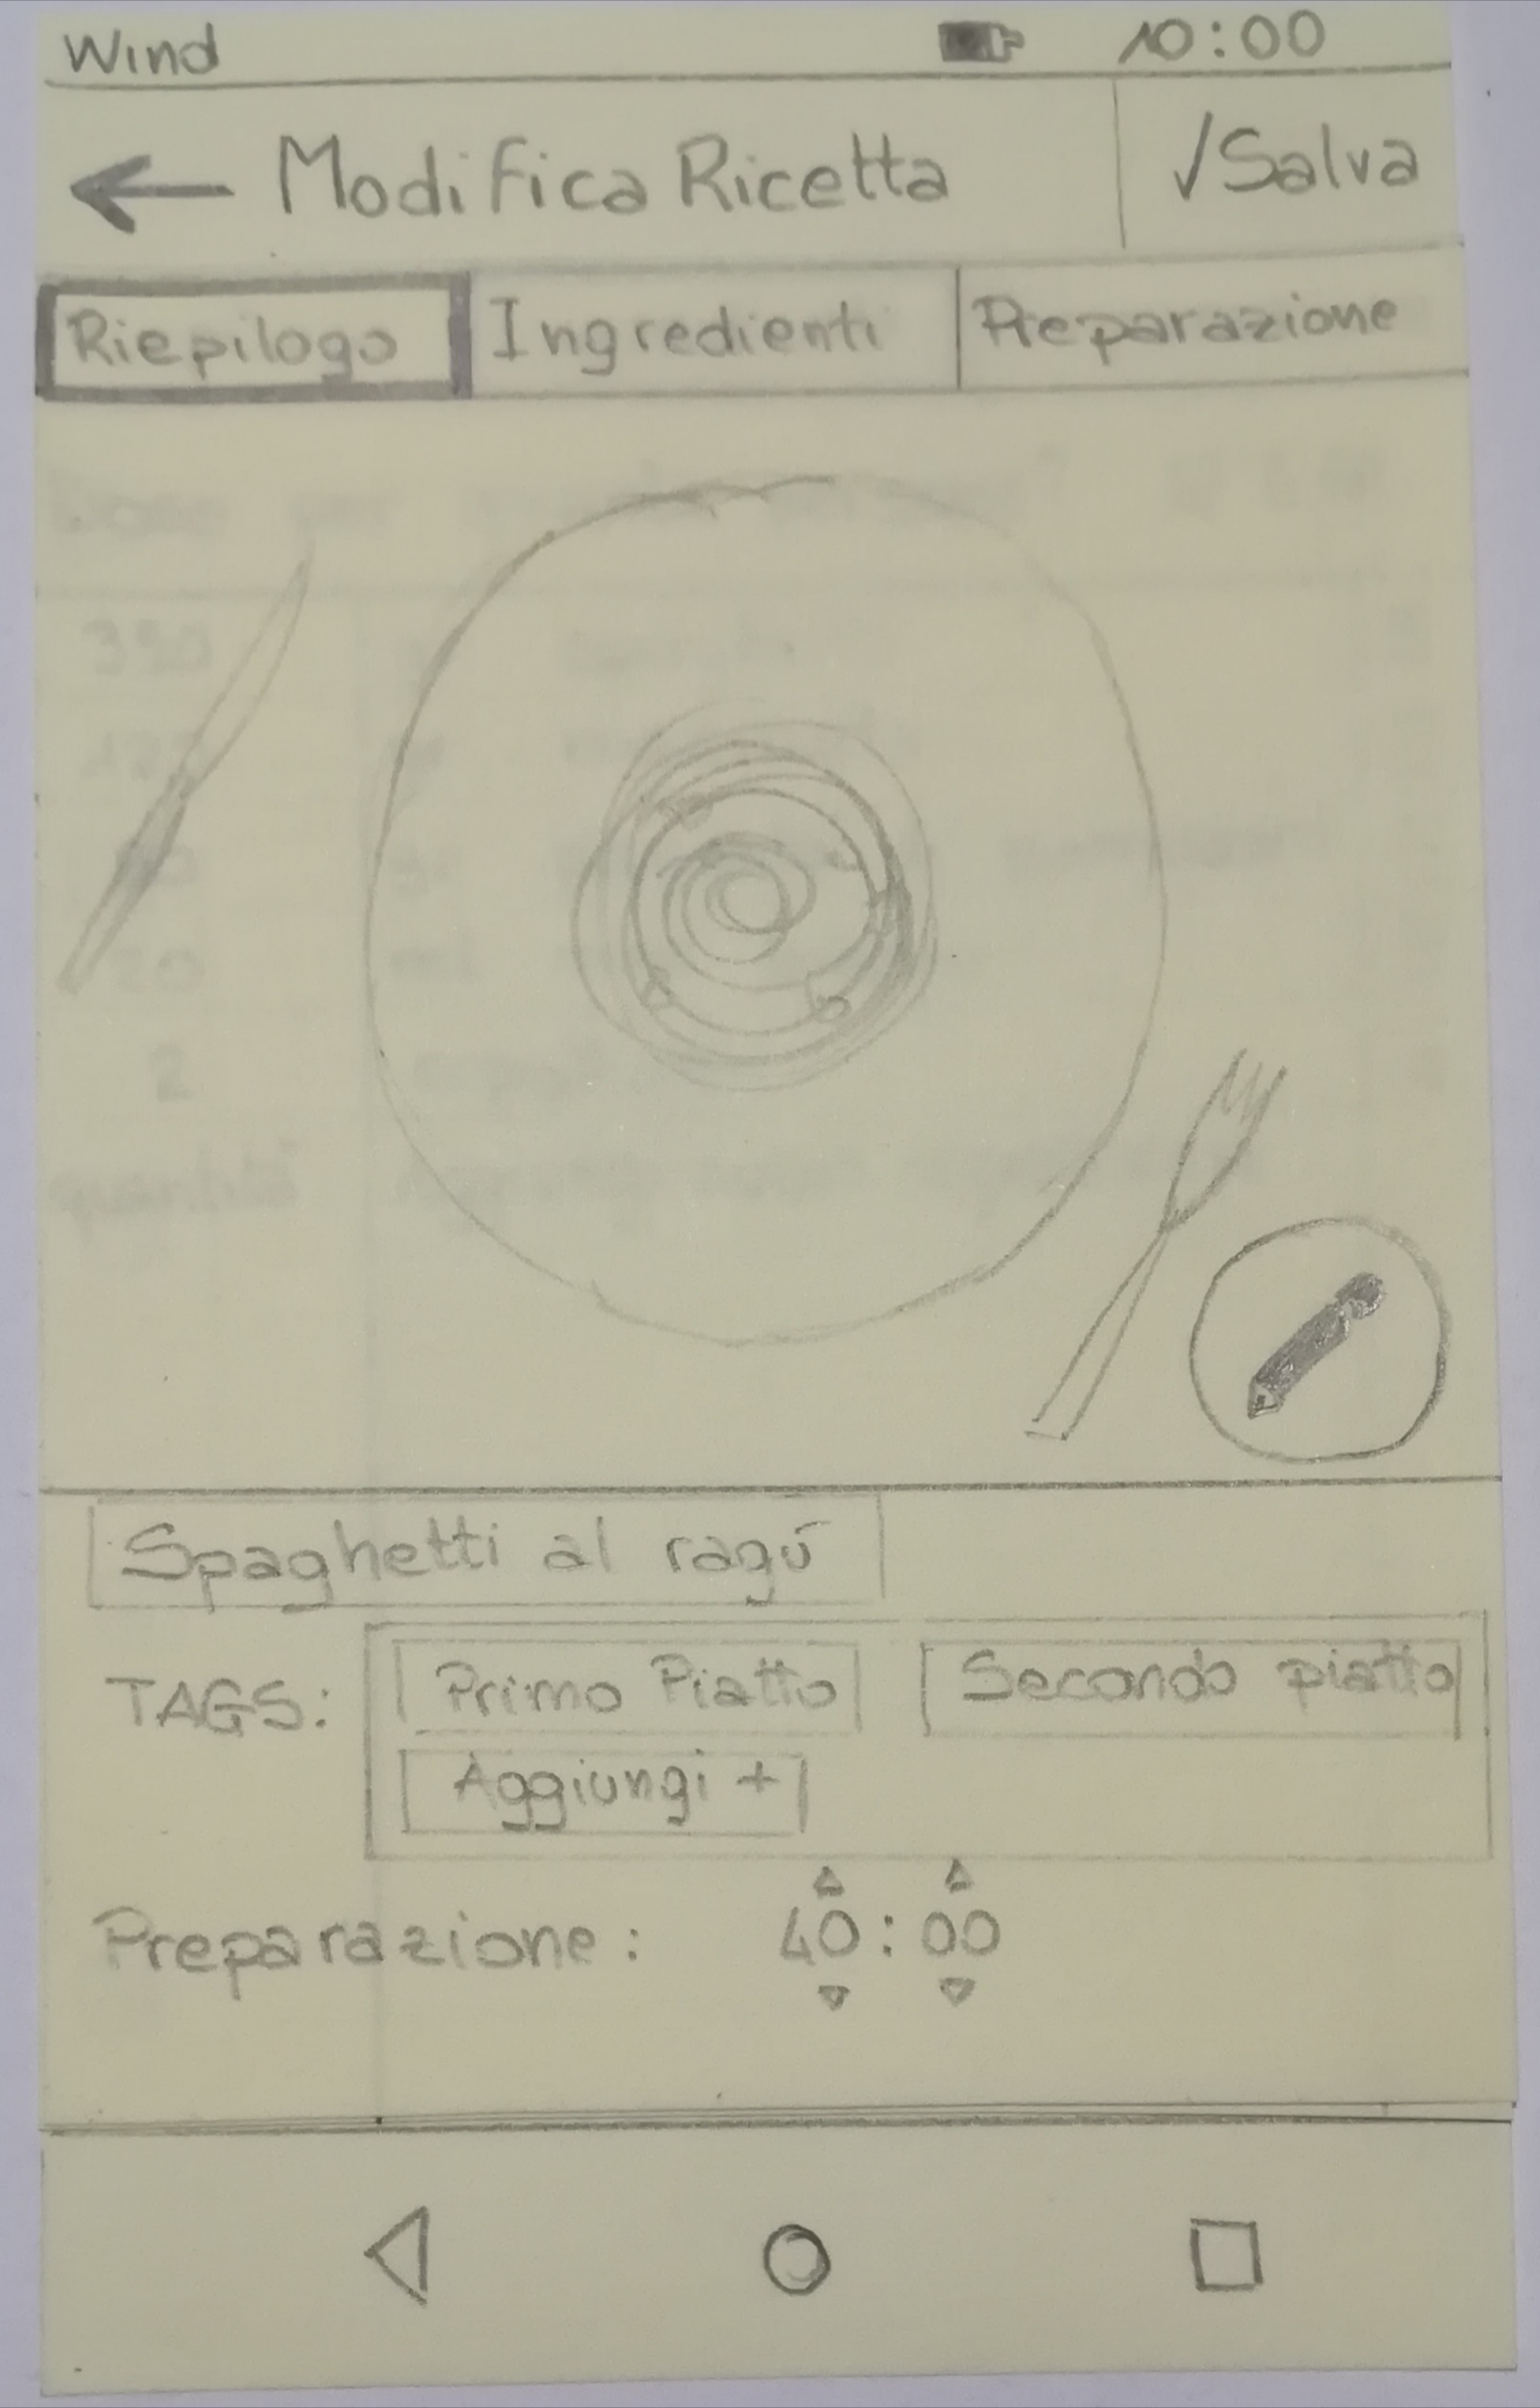 Wind 10:00
← Modifica Ricetta √Salva
Riepilogo Ingredienti Preparazione
350
20
2
quantità
Spaghetti al ragú
TAGS: Primo Piatto Secondo piatto
Aggiungi +
Preparazione: 40:00